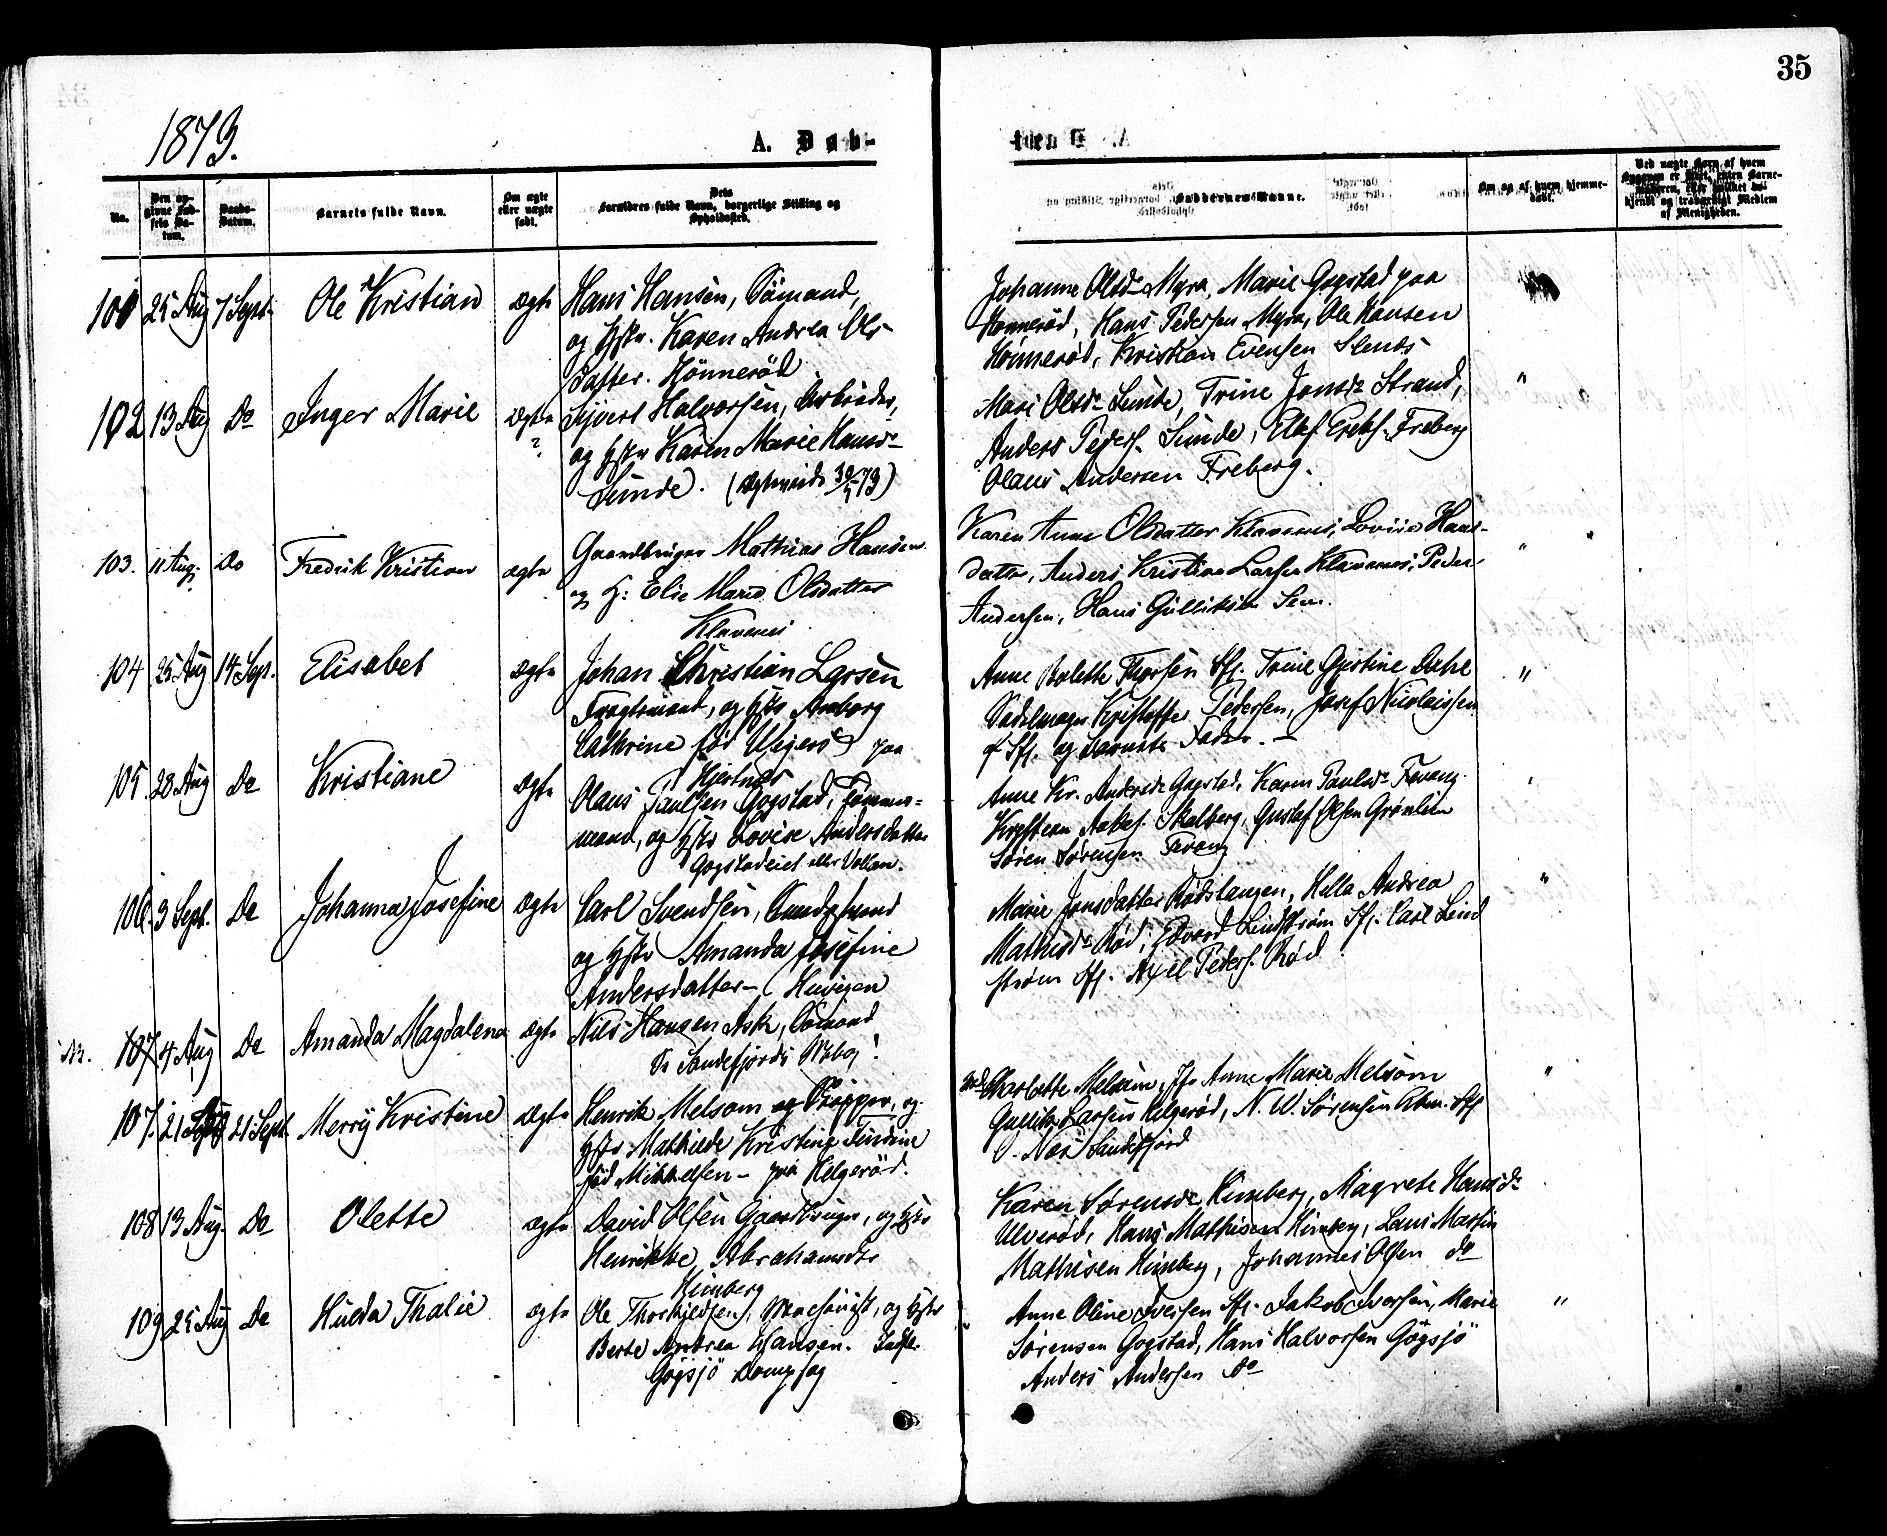 35
1873.
A. Døb-
No.
Den angivne Fødsels Datum.
Daabs-Datum.
Barnets fulde Navn.
Om ægte eller uægte født.
Dets Forældres fulde Navn, borgerlige Stilling og Opholdssted.
Faddernes Navne.
Om og af hvem hjemmedøbt.
101 25 Aug 7 Sept. Ole Kristian ægte Hans Hansen, Sømand,
og Hstr. Karen Andrea Ols-
datter. Hönneröd
Johanne Olsd. Myra, Marie Gogstad paa
Hönneröd, Hans Pedersen Myra, Ole Hansen
Hönneröd, Kristian Evensen
102 13 Aug Do Inger Marie ægte Halvorsen, Arbeider,
? og Hstr Karen Marie Hansd.
Sunde.
Mari Olsdr Sunde, Trine Jonsdr Strand,
Anders Peders. Sunde, Freberg
Olaus Andersen Freberg.
103. 11 Aug. Do Fredrik Kristian ægte Gaardbruger Mathias Hansen
og H: Elie Marie Olsdatter
Klavenes
Karen Anne Olsdatter Klavenes, Lovise Hans-
datter, Anders Kristian Larsen Klavenes, Peder
Andersen, Hans Gulliksen Sem.
104 25 Aug 14 Sept. Elisabet ægte Johan Christian Larsen
Fragtemand, og Hstr
Cathrine fød paa
Hjertnes
Anne Bolette Thorsen Sfj. Trine Gjertine Dahl
Sadelmager Kristoffer Pedersen, Josef Nicolaissen
af Sfj. og Barnets Fader.
105 28 Aug Do Kristiane ægte Olaus Paulsen Gogstad, Tømmer-
mand, og Hstr Lovise Andersdatter
Gogstadeiet eller Vollen.
Anne Kr. Andersdr Gogstad, Karen Paulsdr Fevang.
Skolberg, Gustaf Olsen Grönlien
Søren Sørensen Fevang
106. 3 Sept. Do Johanna Josefine ægte Carl Svendsen,
og Hstr Amanda Josefine
Andersdatter
Marie Jonsdatter Rødstangen, Andrea
Mathisdr Rød, Edvard Lindstrøm Sfj. Carl Lind
strøm Sfj. Axel Peders. Rød
107 4 Aug Do Amanda Magdalena ægte Nils Hansen Ask, Sømand
Se Sandefjords Mbog!
107. 21 21 Sept. Merry Kristine ægte Henrik Melsom og Skipper, og
Hstr Mathilde Kristine
fød Mikkelsen - paa Helgeröd.
Charlotte Melsom, Anne Marie Melsom
Gullik Larsen Helgeröd, N. W. Sørensen
Sandefjord
108 13 Aug. Do Olette ægte David Olsen Gaardbruger, og Hstr
Henrikke Abrahamsdtr
Himberg
Karen Sørensdr Himberg, Magrete Hansdr
Ulveröd, Hans Mathisen Himberg, Laus Martin
Mathisen Himberg, Johannes Olsen do
109 25 Aug Do Hulda Thalie ægte Ole Thorkjeldsen, og Hstr
Berte Andrea Hansen.
Gögsjö
Anne Oline Iversen Sfj. Jakob Iversen, Marie
Sørensen Gogstad, Hans Halvorsen Gögsjö
Anders Andersen do